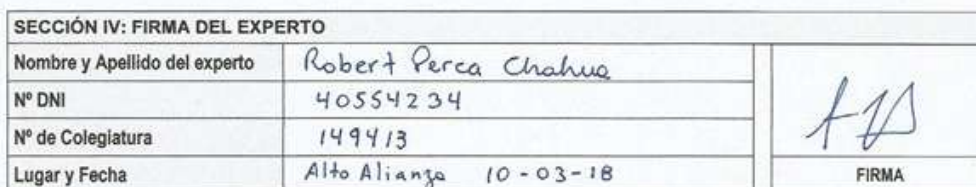 SECCIÓN IV: FIRMA DEL EXPERTO
Nombre y Apellido del experto Robert Perca Chahua
Nº DNI 40554234
Nº de Colegiatura 149413
Lugar y Fecha Alto Alianza 10-03-18
FIRMA